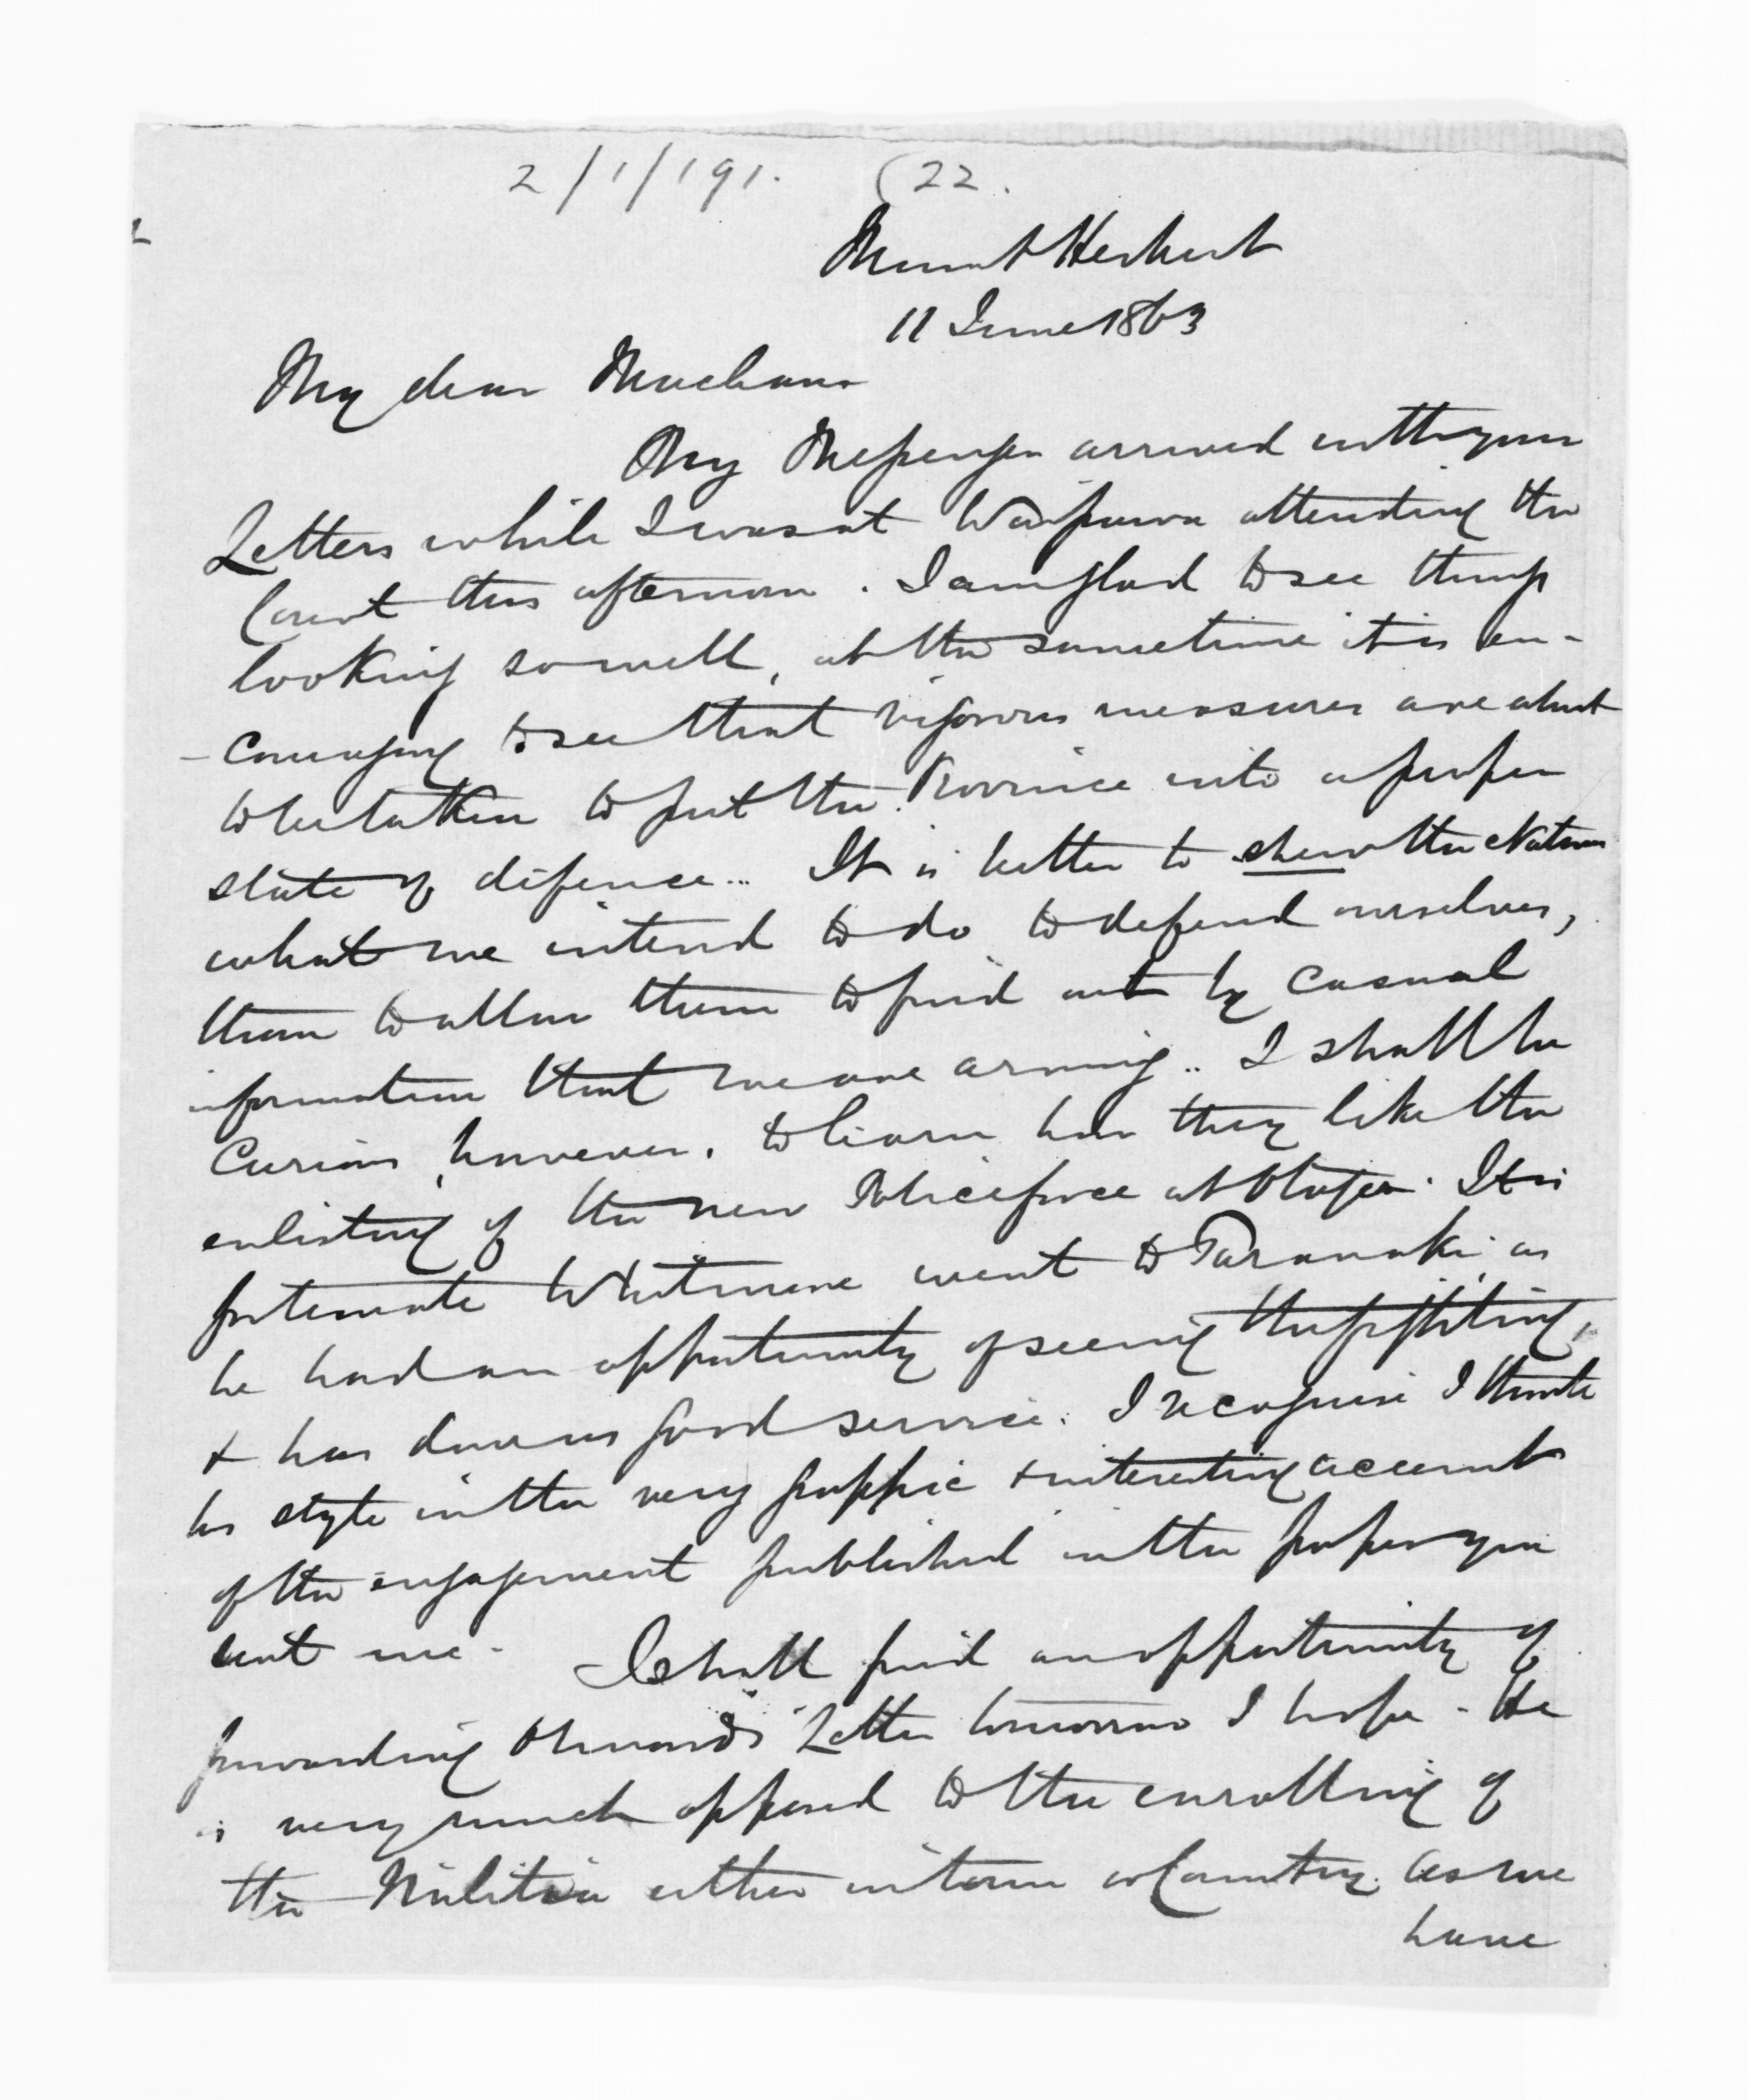 2/1/191. (22.
Mount Herbert
11 June 1863
My dear Maclean
My Messenger arrived with your
Letters while I was at Waipawa attending the
Court this afternoon. I am glad to see things
looking so well, at the same time it is en-
-couraging to see that vigorous measures are about
to be taken to put the Province into a proper
state of defence... It is better to shew the Natives
what we intend to do to defend ourselves,
than to allow them to find out by casual
information that we are arming.. I shall be
curious, however, to learn how they like the
enlisting of the new Police force at Otago. It is
fortunate Whitmore went to Taranaki as
he had an opportunity of seeing the fighting,
& has done us good service. I recognise I think
his style in the very graphic & interesting account
of the engagement published in the paper you
sent me. I shall find an opportunity of
forwarding Ormond's Letter tomorrow I hope. He
is very much opposed to the enrolling of
the Militia either in town or Country. As we
have